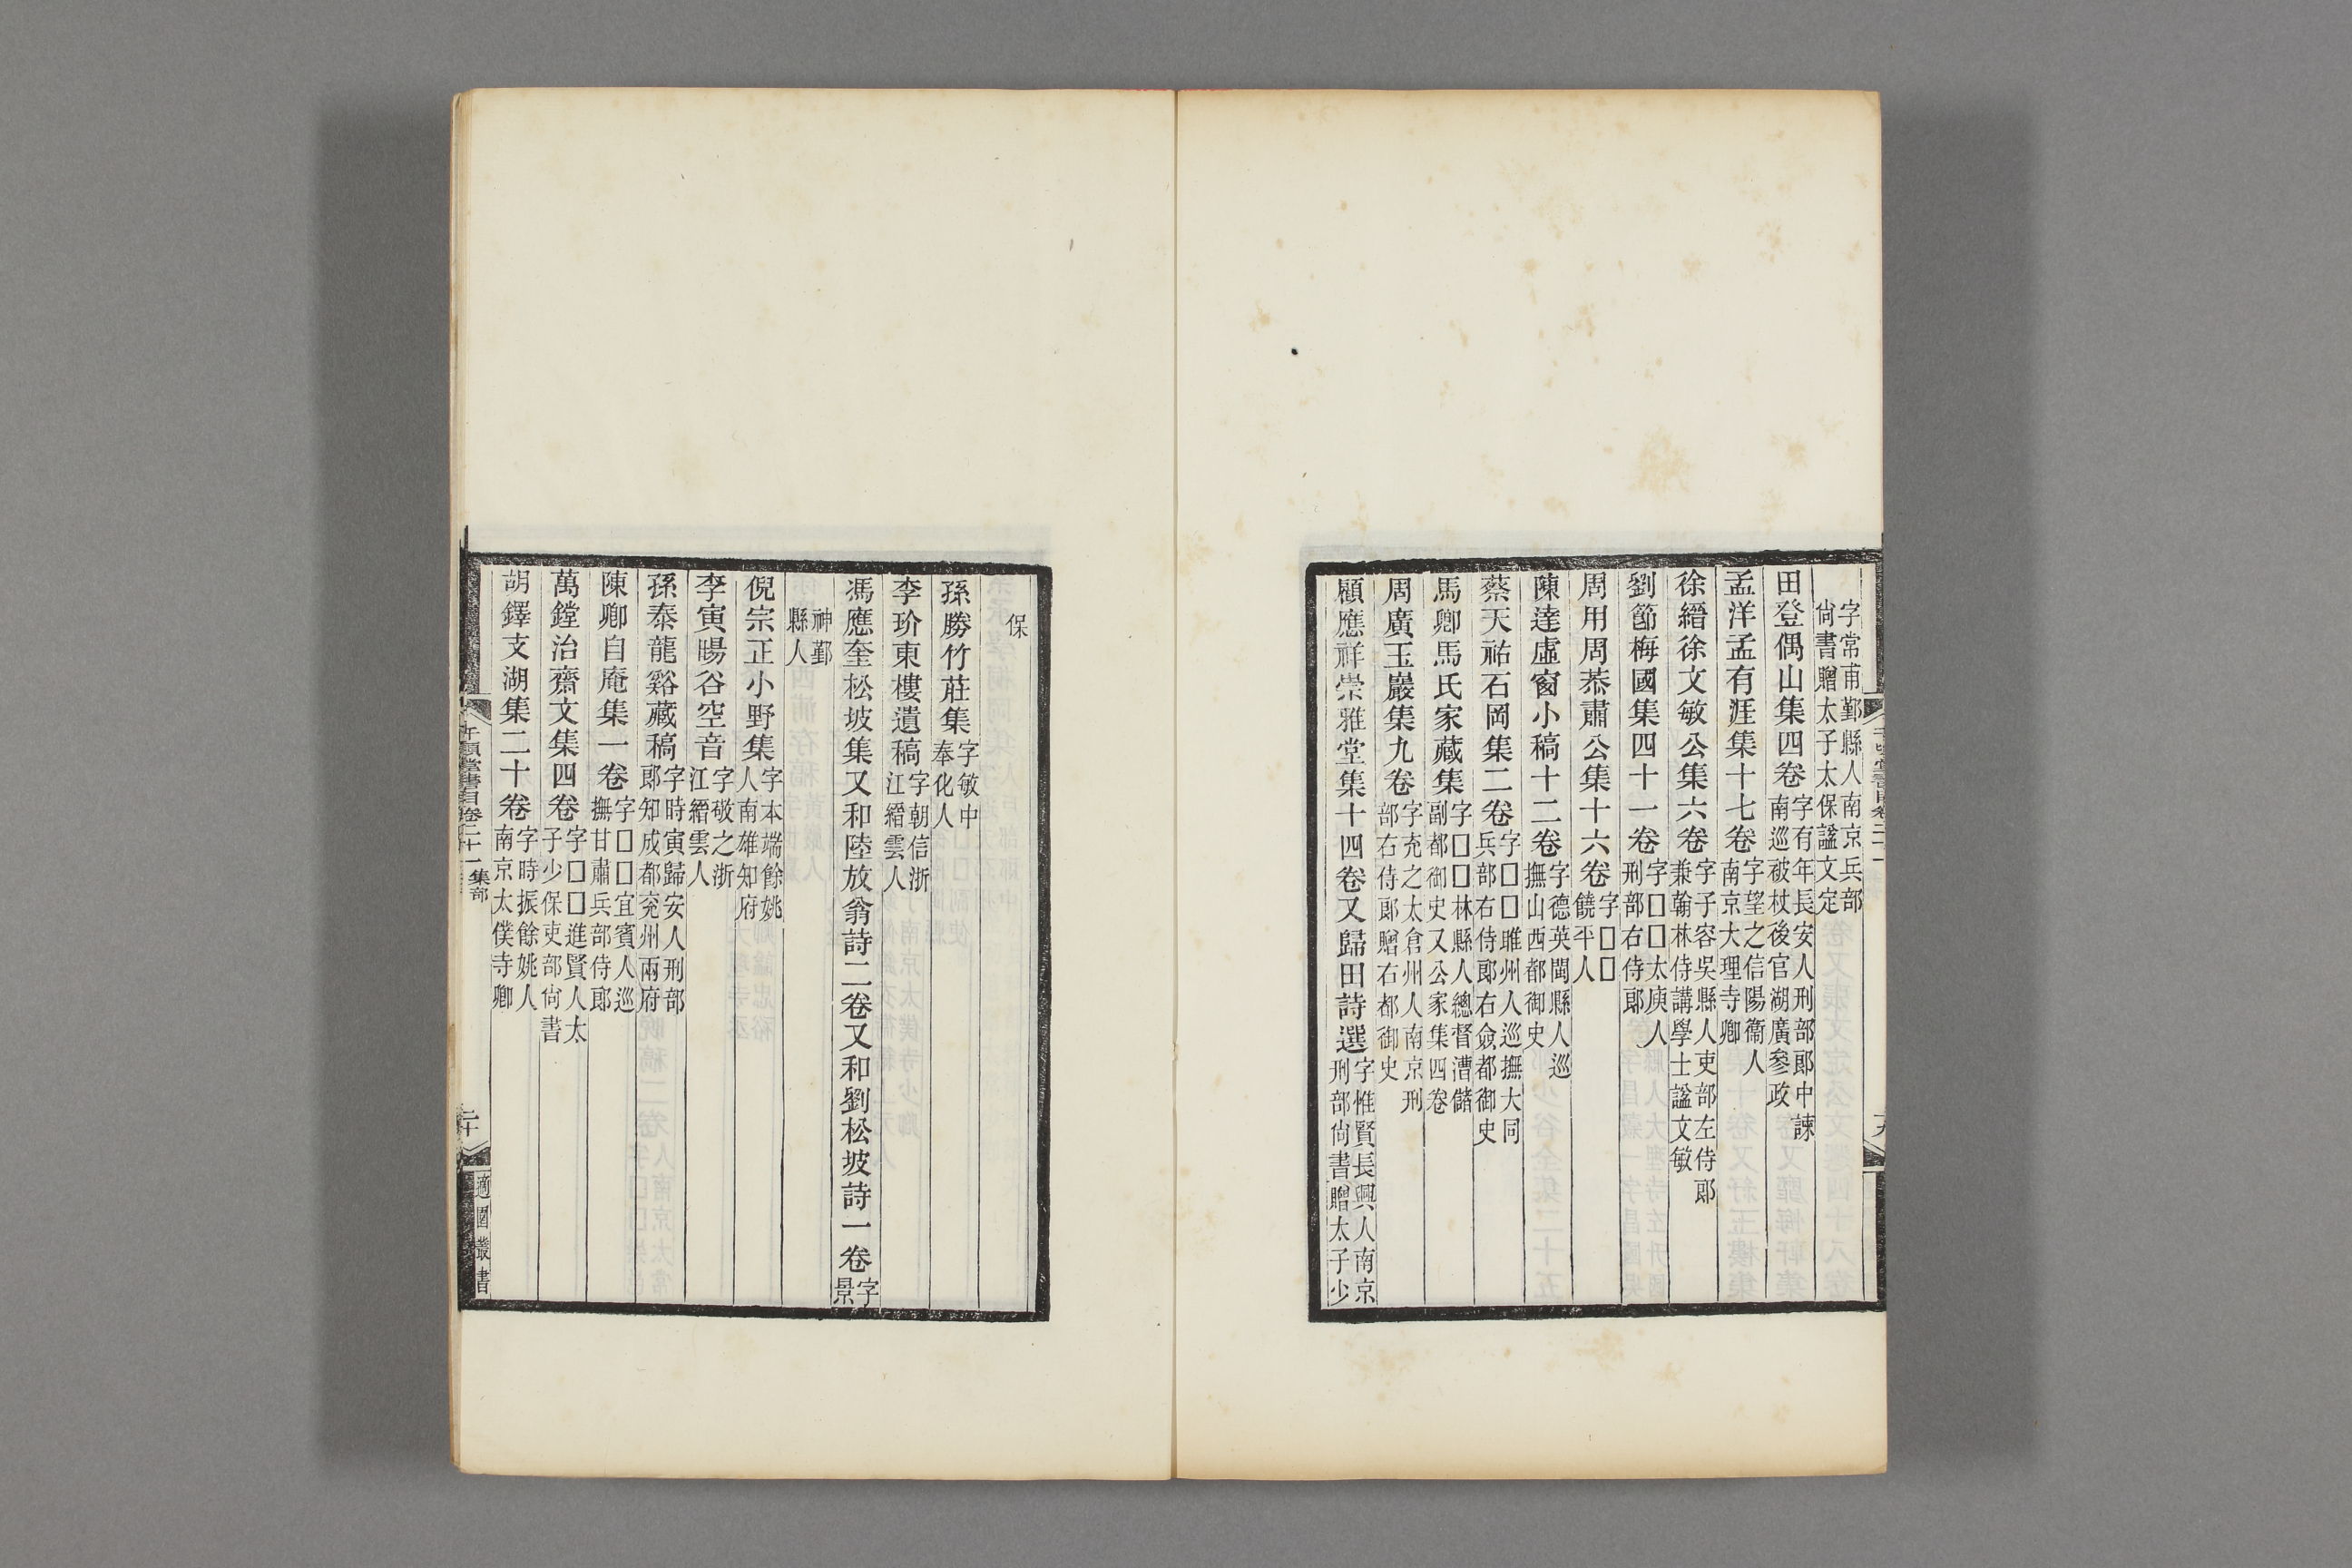 字常甫鄞縣人南京兵部
尙書贈太子太保諡文定
田登偶山集四卷字有年長安人刑部郎中諫
南巡被杖後官湖廣參政
孟洋孟有涯集十七卷字望之信陽衞人
南京大理寺卿
徐縉徐文敏公集六卷字子容吳縣人吏部左侍郎
兼翰林侍講學士諡文敏
劉節梅國集四十一卷字□□太庾人
刑部右侍郎
周用周恭肅公集十六卷字□□
饒平人
陳達虛窗小稿十二卷字德英閩縣人巡
撫山西都御史
蔡天祐石岡集二卷字□□睢州人巡撫大同
兵部右侍郎右僉都御史
馬卿馬氏家藏集字□□林縣人總督漕儲
副都御史又公家集四卷
周廣玉巖集九卷字充之太倉州人南京刑
部右侍郎贈右都御史
顧應祥崇雅堂集十四卷又歸田詩選字惟賢長興人南京
刑部尙書贈太子少
保
孫勝竹莊集字敏中
奉化人
李玠東樓遺稿字朝信浙
江縉雲人
馮應奎松坡集又和陸放翁詩二卷又和劉松坡詩一卷字
景
神鄞
縣人
倪宗正小野集字本端餘姚
人南雄知府
李寅暘谷空音字敬之浙
江縉雲人
孫泰龍谿藏稿字時寅歸安人刑部
郎知成都兗州兩府
陳卿自庵集一卷字□□宜賓人巡
撫甘肅兵部侍郎
萬鏜治齋文集四卷字□□進賢人太
子少保吏部尙書
胡鐸支湖集二十卷字時振餘姚人
南京太僕寺卿
千頃堂書目卷二十一 集部
二十
適園叢書